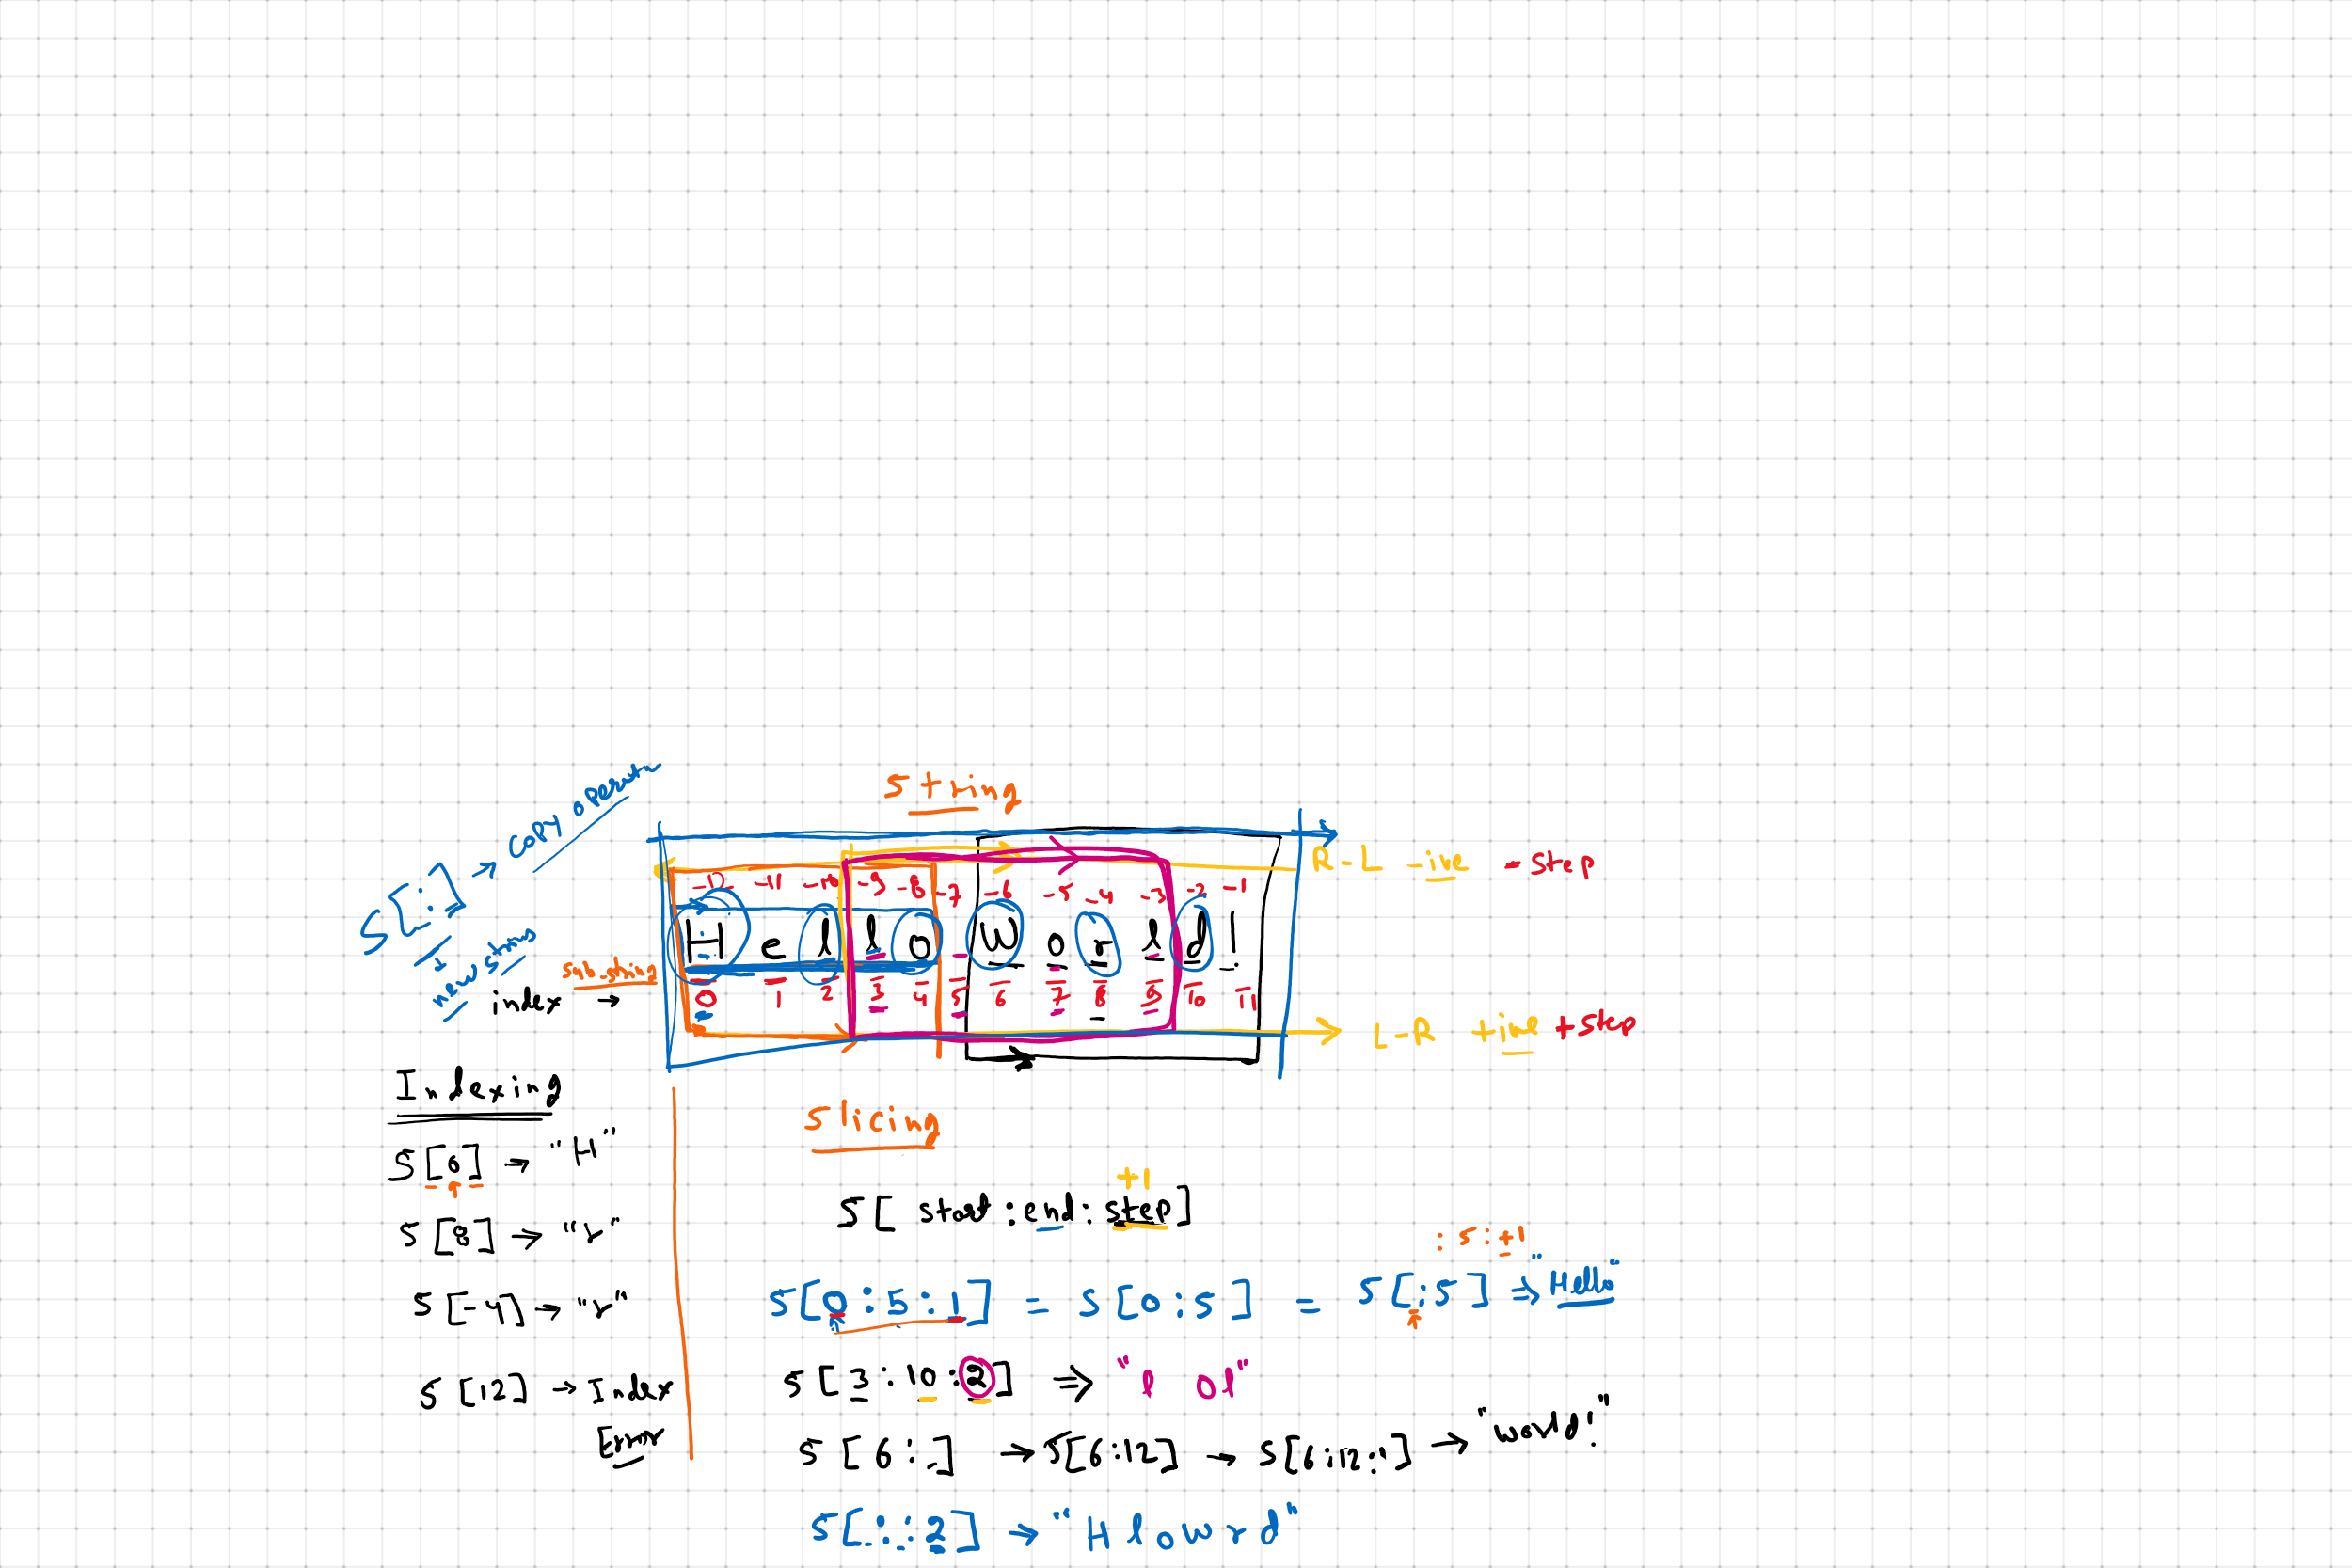 String
S[:] → copy operator
new string
R-L -ive -step
-12 -11 -10 -9 -8 -7 -6 -5 -4 -3 -2 -1
H e l l o W o r l d !
sub-string
index → 0 1 2 3 4 5 6 7 8 9 10 11
L-R +ive +step
Indexing
S[0] → "H"
S[8] → "r"
S[-4] → "r"
S[12] → Index
Error
Slicing
+1
S[ start:end:step]
:5:+1
S[0:5:1] = S[0:5] = S[:5] ⇒ "Hello"
S[3:10:2] ⇒ "l ol"
S[6:] → S[6:12] → S[6:12:1] → "World!"
S[::2] → "Hlowrd"